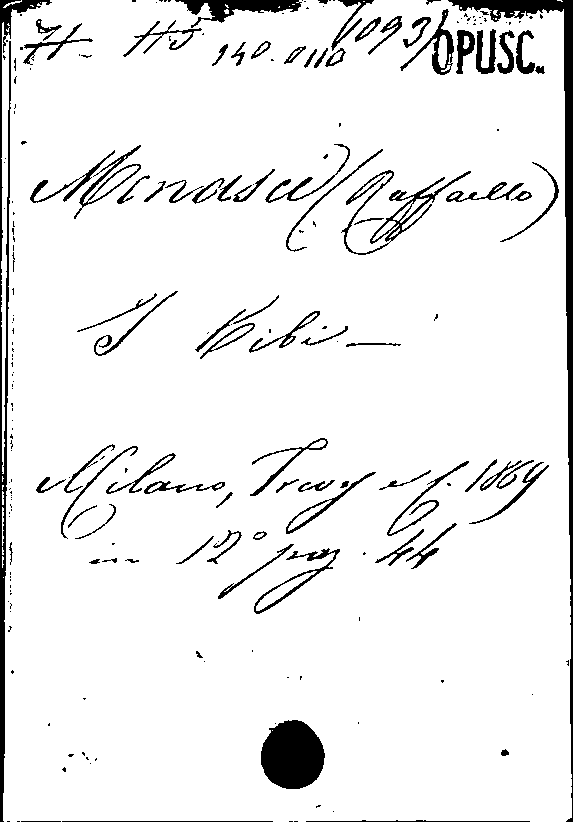 H- H5 140.0110 1093/ OPUSC.
Menascè (Raffaello)
I Bibi -
Milano, Treves e C. 1869
in 12° pag. 44